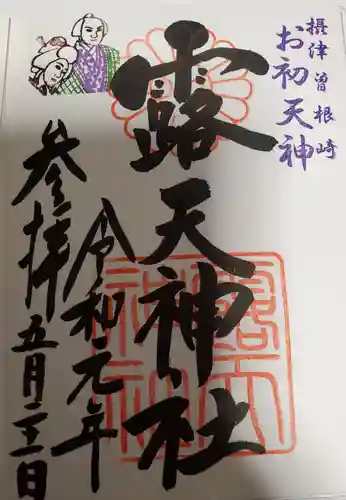 摂津曽根崎
お初天神
露天神社
令和元年
五月二十一日
参拝